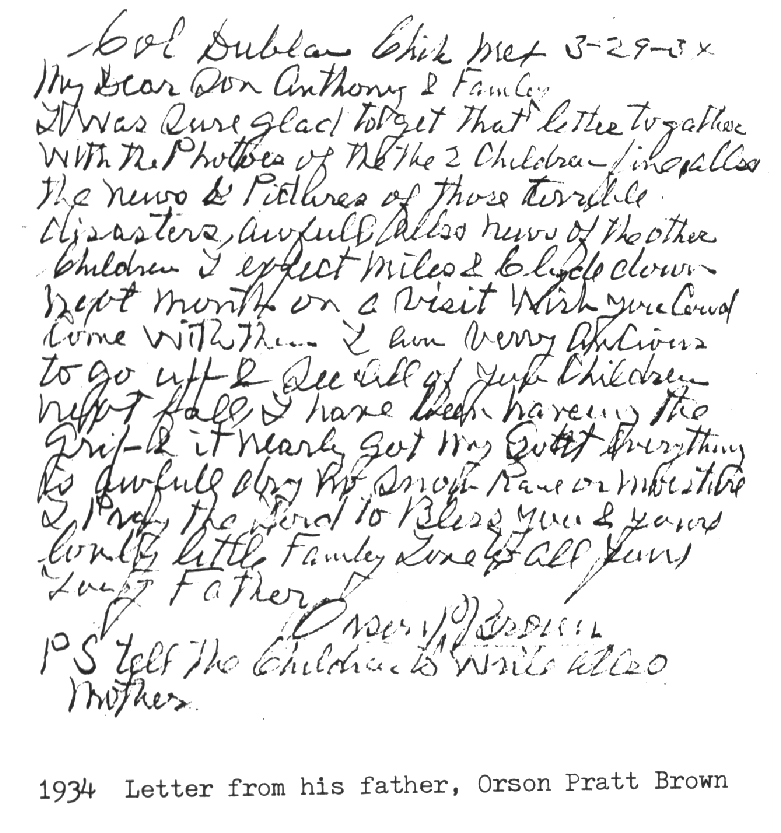 Col Dublan Chih Mex 3-29-3
My Dear Son Anthony & Family
I Was Sure glad to get that letter togather
With the Photoes of the the 2 Children fine, allso
the news & Pictures of those terrible
disasters, awfull, allso news of the other
Children I expect Miles & Clyde down
next month on a visit Wish you Coud
Come With them I am verry Anctious
to go up & See all of you Children
next fall, I have been haveing the
Grip & it nearly got my Everything
is awfull dry No Snow Rane or Moisture
I Pray the Lord to Bless you & yours
lovely little Famley Love to all yours
Father
Orson P. Brown
PS tell the Children to Write allso
Mother
1934 Letter from his father, Orson Pratt Brown